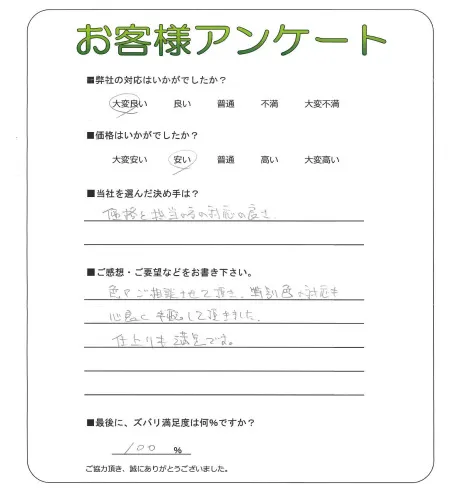 お客様アンケート
■弊社の対応はいかがでしたか?
大変良い 良い 普通 不満 大変不満
■価格はいかがでしたか?
大変安い 安い 普通 高い 大変高い
■当社を選んだ決め手は?
価格と担当の方の対応の良さ
■ご感想・ご要望などをお書き下さい。
色々ご相談させて頂き、特別色の対応も
心良く手配して頂きました。
仕上りも満足です。
■最後に、ズバリ満足度は何%ですか?
100 %
ご協力頂き、誠にありがとうございました。